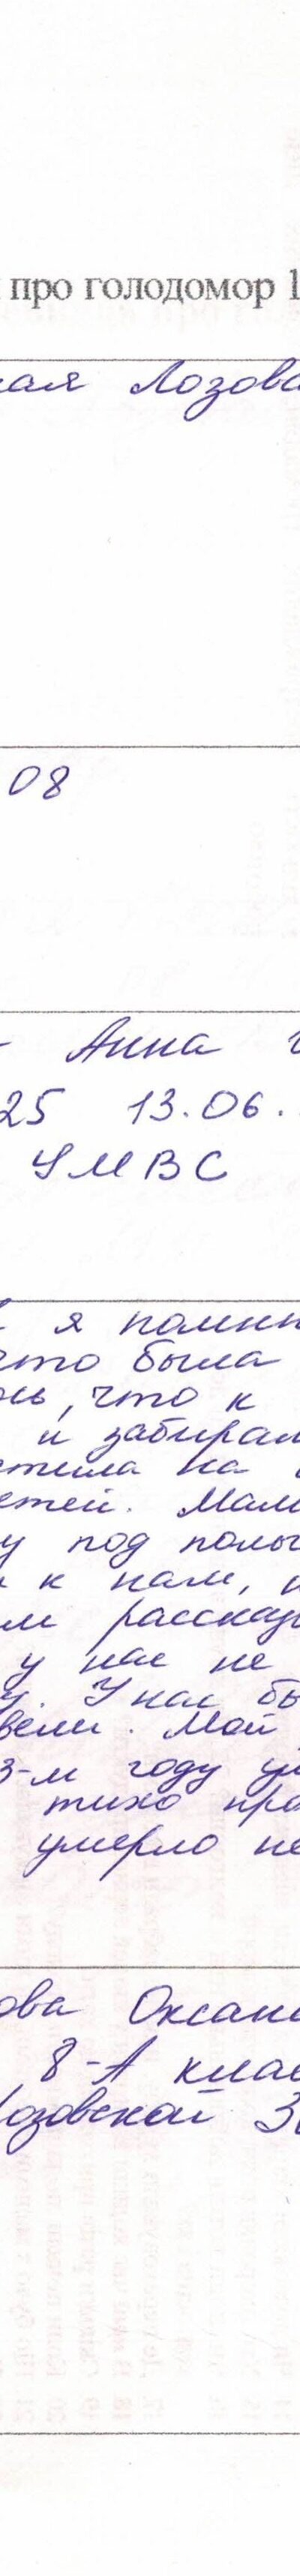 про голодомор 1
кая Лозова
08
Анна
25 13.06.
УМВС
я помни
что была
нь, что к
и забирал
стила на
етей. Мам
у под полы
и к нам, и
м рассказы
у нас не
у. У нас бы
вели. Мой
3-м году ум
тихо пра
умерло не
ова Оксан
8-А клас
Лозовской З